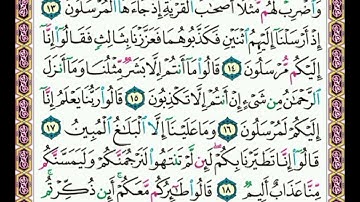 وَٱضۡرِبۡ لَهُم مَّثَلًا أَصۡحَٰبَ ٱلۡقَرۡيَةِ إِذۡ جَآءَهَا ٱلۡمُرۡسَلُونَ ١٣
إِذۡ أَرۡسَلۡنَآ إِلَيۡهِمُ ٱثۡنَيۡنِ فَكَذَّبُوهُمَا فَعَزَّزۡنَا بِثَالِثٖ فَقَالُوٓاْ إِنَّآ
إِلَيۡكُم مُّرۡسَلُونَ ١٤ قَالُواْ مَآ أَنتُمۡ إِلَّا بَشَرٞ مِّثۡلُنَا وَمَآ أَنزَلَ
ٱلرَّحۡمَٰنُ مِن شَيۡءٍ إِنۡ أَنتُمۡ إِلَّا تَكۡذِبُونَ ١٥ قَالُواْ رَبُّنَا يَعۡلَمُ إِنَّآ
إِلَيۡكُمۡ لَمُرۡسَلُونَ ١٦ وَمَا عَلَيۡنَآ إِلَّا ٱلۡبَلَٰغُ ٱلۡمُبِينُ ١٧
قَالُوٓاْ إِنَّا تَطَيَّرۡنَا بِكُمۡۖ لَئِن لَّمۡ تَنتَهُواْ لَنَرۡجُمَنَّكُمۡ وَلَيَمَسَّنَّكُم
مِّنَّا عَذَابٌ أَلِيمٞ ١٨ قَالُواْ طَٰٓئِرُكُم مَّعَكُمۡ أَئِن ذُكِّرۡتُمۚ